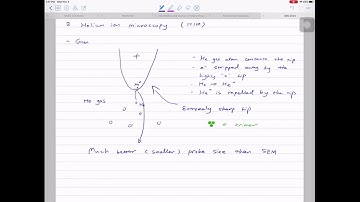 2. Helium ion microscopy (HIM)
- Gun
+
He gas
He⁺
• He gas atom contacts the tip
• e⁻ stripped away by the
highly "+" tip
• He → He⁺
• He⁺ is repelled by the tip
Extremely sharp tip
= trimer
Much better (smaller) probe size than SEM